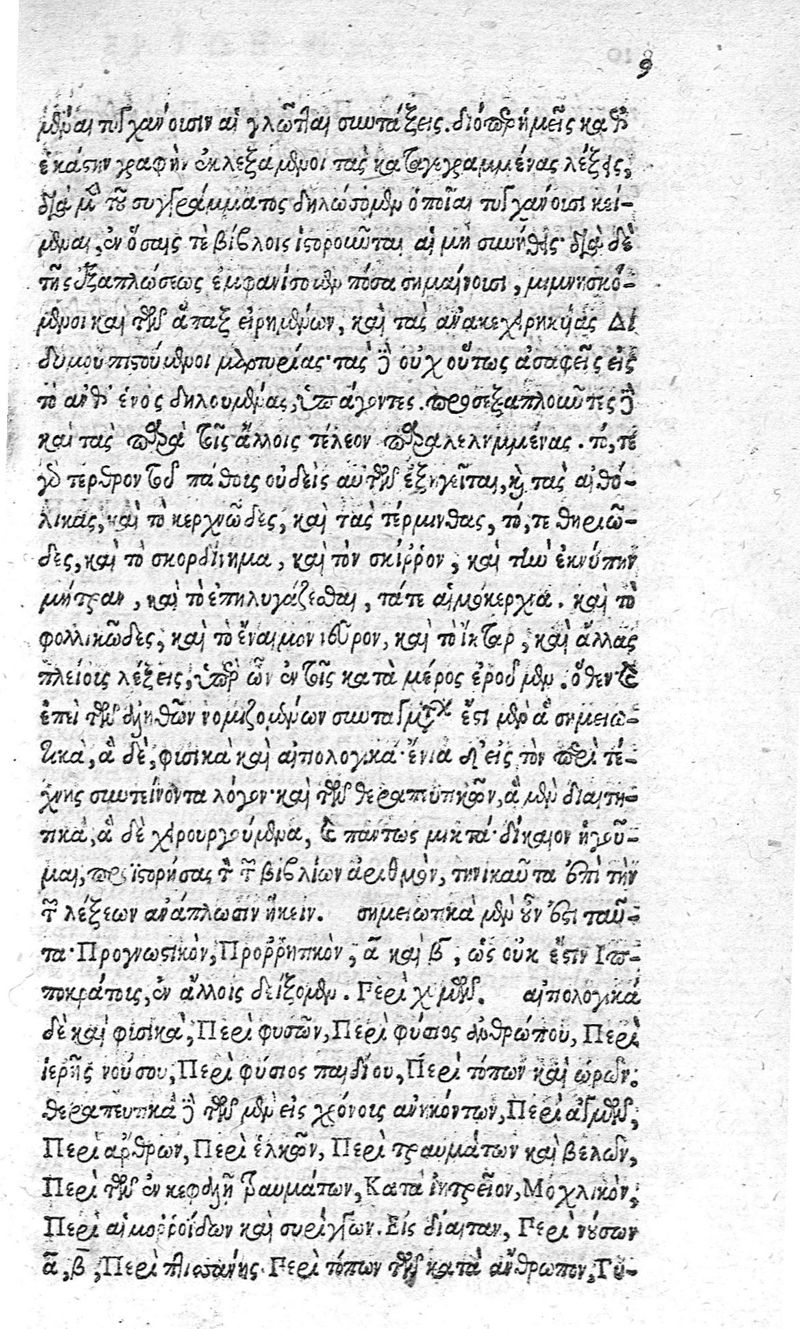 9
μέναι τυγχάνουσιν αἱ γλῶτται συντάξεις. διόπερ ἡμεῖς καθ'
ἑκάστην γραφὴν ἐκλεξάμενοι τὰς καταγεγραμμένας λέξεις,
διὰ μὲν τοῦ συγγράμματος δηλώσομεν ὁποῖαι τυγχάνουσι κεί-
μεναι, ἐν ὅσαις τὲ βίβλοις ἱστοροῦνται αἱ μὴ συνήθεις· διὰ δὲ
τῆς ἐξαπλώσεως ἐμφανίσομεν πόσα σημαίνουσι, μιμνησκό-
μενοι καὶ τῶν ἅπαξ εἰρημένων, καὶ τὰς ἀνακεχωρηκυίας Δι
δύμου πιστούμενοι μαρτυρίας· τὰς δὲ οὐχ οὕτως ἀσαφεῖς εἰς
τὸ ἀνθ' ἑνὸς δηλουμένας, ὑπάγοντες. προσεξαπλοῦντες δὲ
καὶ τὰς παρὰ τοῖς ἄλλοις τέλεον παραλελημμένας. τό, τε
γὰρ τέρθρον τοῦ πάθους οὐδεὶς αὐτῶν ἐξηγεῖται, καὶ τὰς αἰθό-
λικας, καὶ τὸ κερχνῶδες, καὶ τὰς τέρμινθας, τό, τε θηριῶ-
δες, καὶ τὸ σκορδίνημα, καὶ τὸν σκίῤῥον, καὶ τὴν
μήτραν, καὶ τὸ ἐπηλυγάζεσθαι, τά τε αἱμόκερχνα. καὶ τὸ
φολλικῶδες, καὶ τὸ ἔναιμον καὶ τὸ ἴκταρ, καὶ ἄλλας
πλείους λέξεις, ὑπὲρ ὧν ἐν τοῖς κατὰ μέρος ἐροῦμεν. ὅθεν καὶ
ἐπεὶ τῶν ἀληθῶν νομιζομένων συνταγμάτων ἔστι μὲν ἃ σημειω-
τικὰ, ἃ δὲ, φυσικὰ καὶ αἰτιολογικά· ἔνια δ' εἰς τὸν περὶ τέ-
χνης συντείνοντα λόγον· καὶ τῶν θεραπευτικῶν, ἃ μὲν διαιτη-
τικὰ, ἃ δὲ χειρουργούμενα, καὶ πάντως μικτά· δίκαιον ἡγοῦ-
μαι, προϊστορήσας τὸν τῶν βιβλίων ἀριθμὸν, τηνικαῦτα ἐπὶ τὴν
τῶν λέξεων ἀνάπλωσιν ἥκειν. σημειωτικὰ μὲν οὖν ἐστι ταῦ-
τα· Προγνωστικὸν, Προῤῥητικὸν, α καὶ β, ὡς οὐκ ἔστιν Ἱπ-
ποκράτους, ἐν ἄλλοις δείξομεν. Περὶ χυμῶν. αἰτιολογικὰ
δὲ καὶ φυσικὰ, Περὶ φυσῶν, Περὶ φύσιος ἀνθρώπου, Περὶ
ἱερῆς νούσου, Περὶ φύσιος παιδίου, Περὶ τόπων καὶ ὡρῶν·
θεραπευτικὰ δὲ τῶν μὲν εἰς χρόνοις ἀνηκόντων, Περὶ ἀγμῶν,
Περὶ ἄρθρων, Περὶ ἑλκῶν, Περὶ τραυμάτων καὶ βελῶν,
Περὶ τῶν ἐν κεφαλῇ τραυμάτων, Κατὰ ἰητρεῖον, Μοχλικὸν,
Περὶ αἱμοῤῥοΐδων καὶ συρίγγων. Εἰς δίαιταν, Περὶ νούσων
α, β, Περὶ πτισάνης· Περὶ τόπων τῶν κατὰ ἄνθρωπον, Γυ-